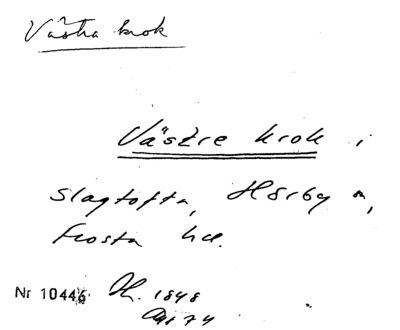 Västra krok
Västre krok i
Slagtofta, Hörby sn,
Frosta hd.
Nr 10446 1848
74